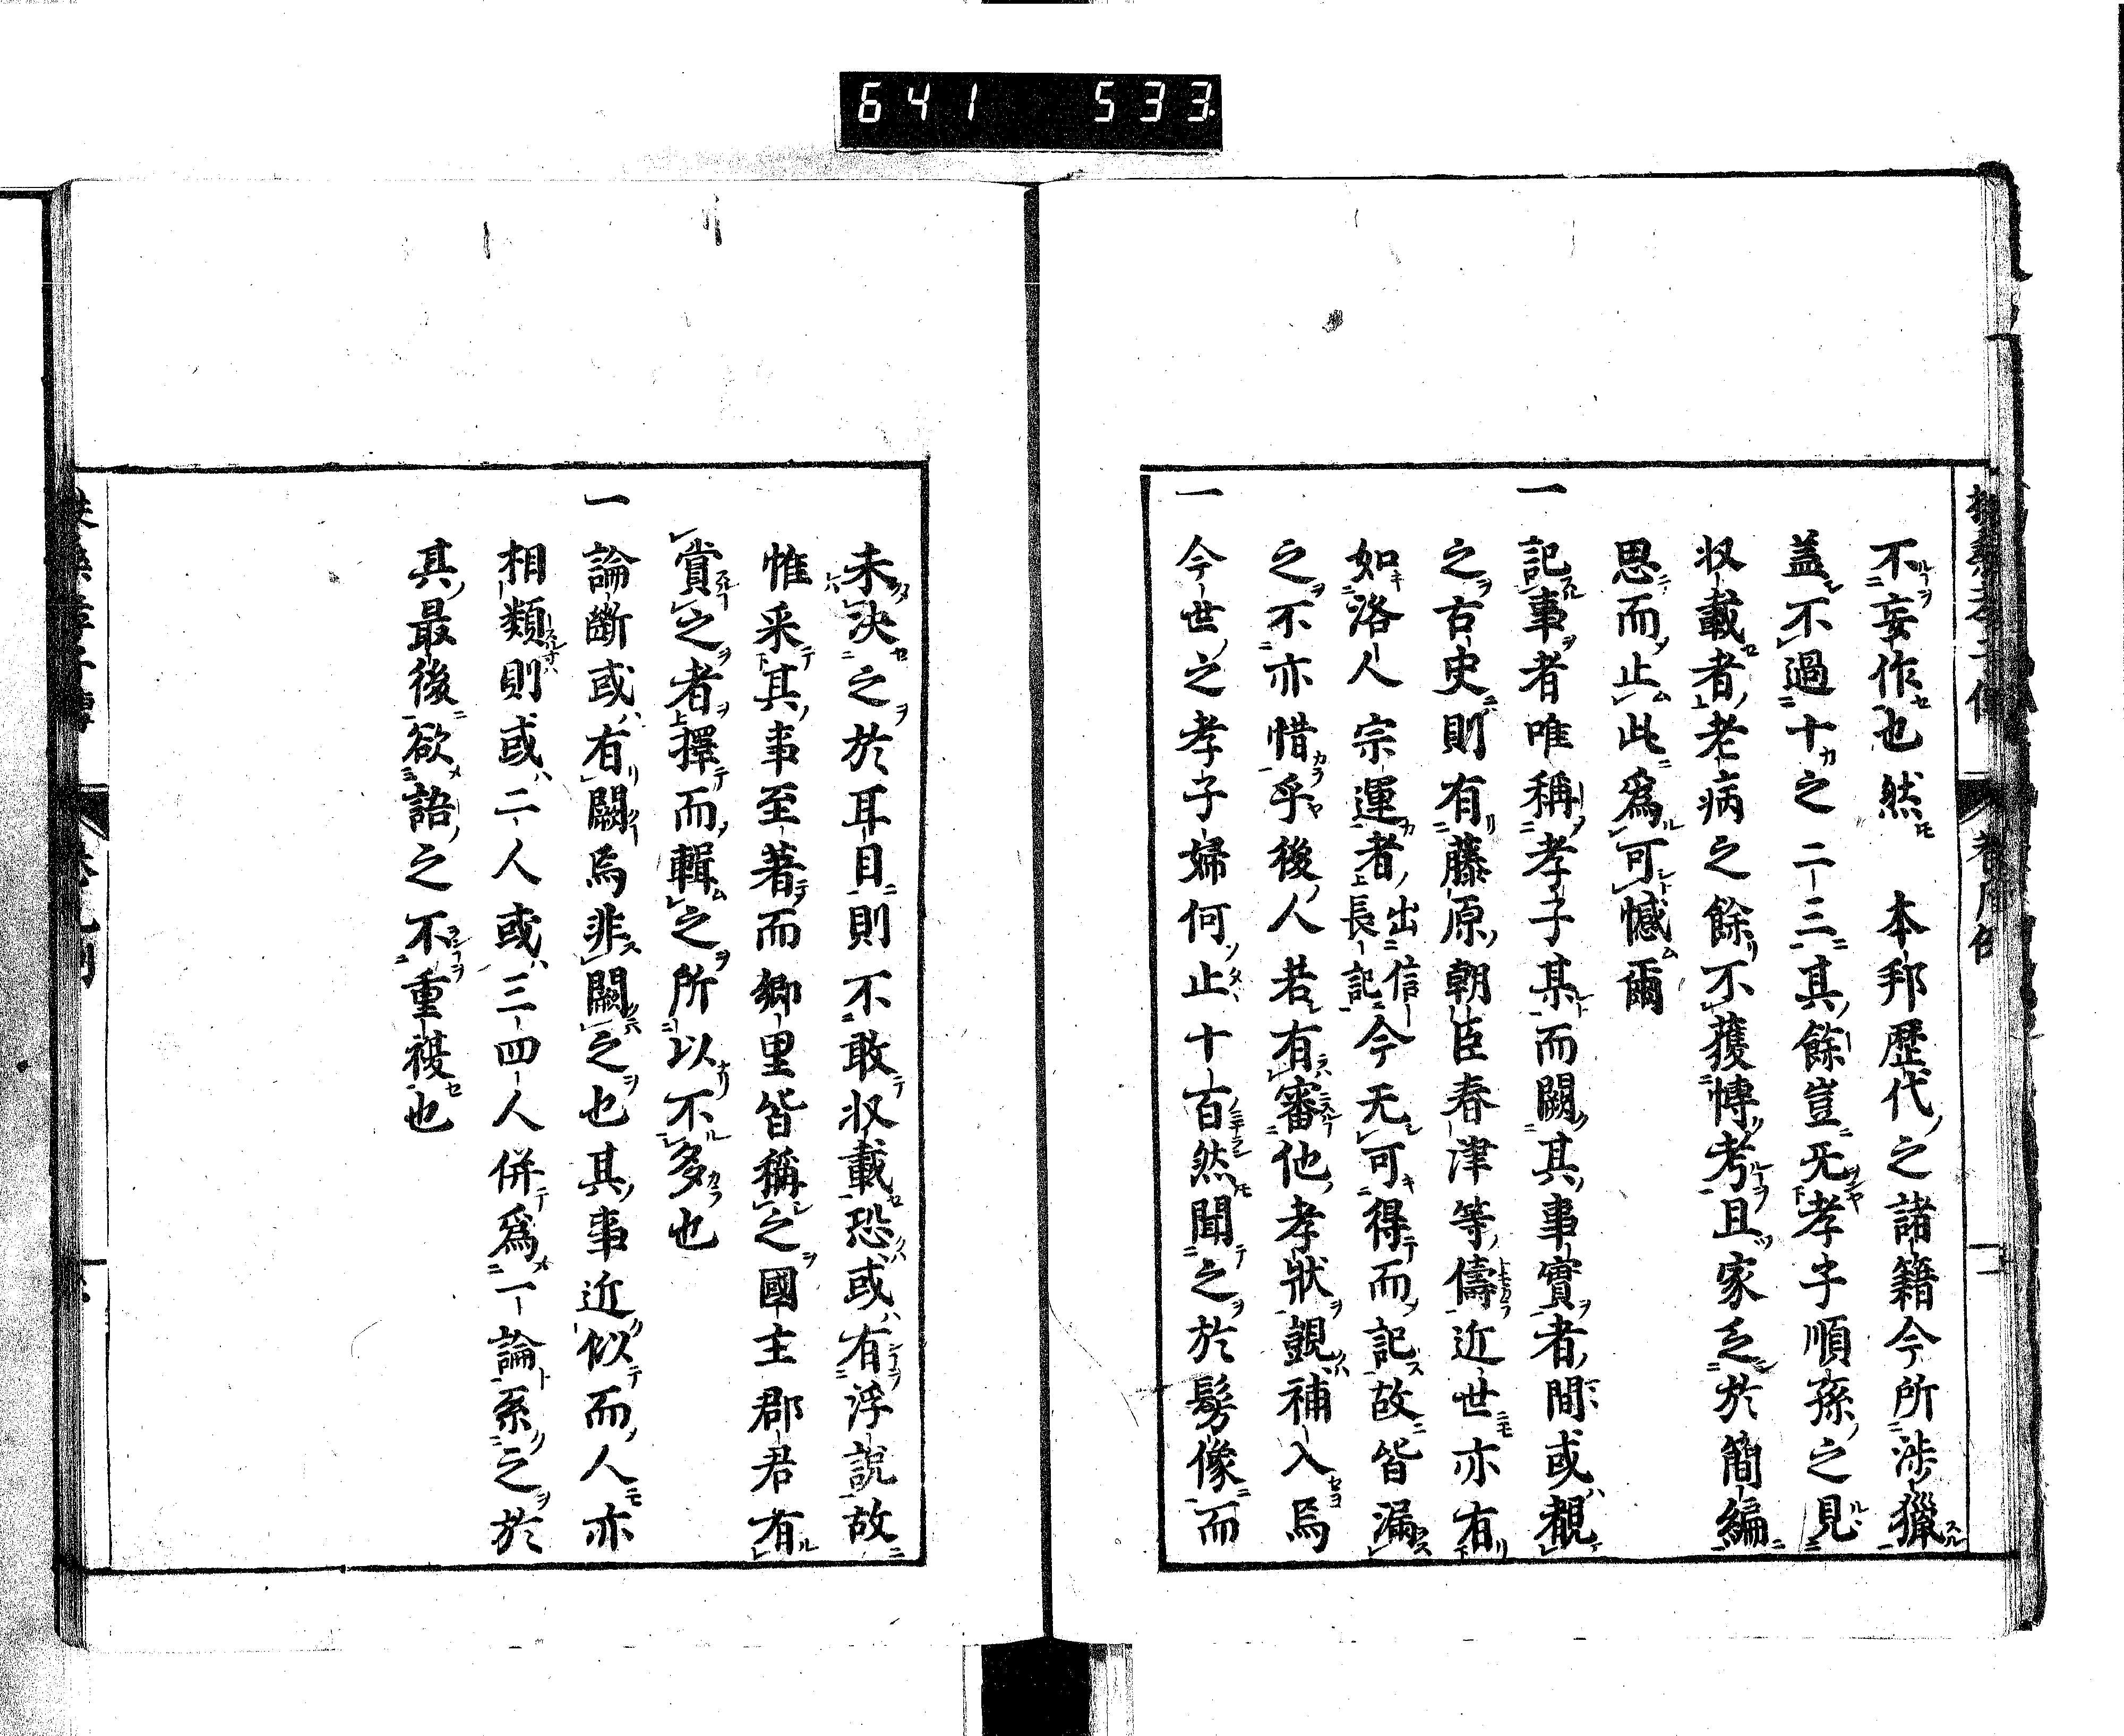 641 533
不妄作也然　本邦歷代之諸籍今所涉獵
盖不過十之二三其餘豈无孝子順孫之見
収載者老病之餘不獲愽考且家乏於簡編
思而止此爲可憾爾
一記事者唯稱孝子某而闕其事實者間或覩
之古史則有藤原朝臣春津等儔近世亦有
如洛人宗運者出信長記今无可得而記故皆漏
之不亦惜乎後人若有審他孝狀覬補入焉
一今世之孝子婦何止十百然聞之於髣像而
未決之於耳目則不敢収載恐或有浮說故
惟采其事至著而鄉里皆稱之國主郡君有
賞之者擇而輯之所以不多也
一論斷或有闕焉非闕之也其事近似而人亦
相類則或二人或三四人併爲一論系之於
其最後欲語之不重複也